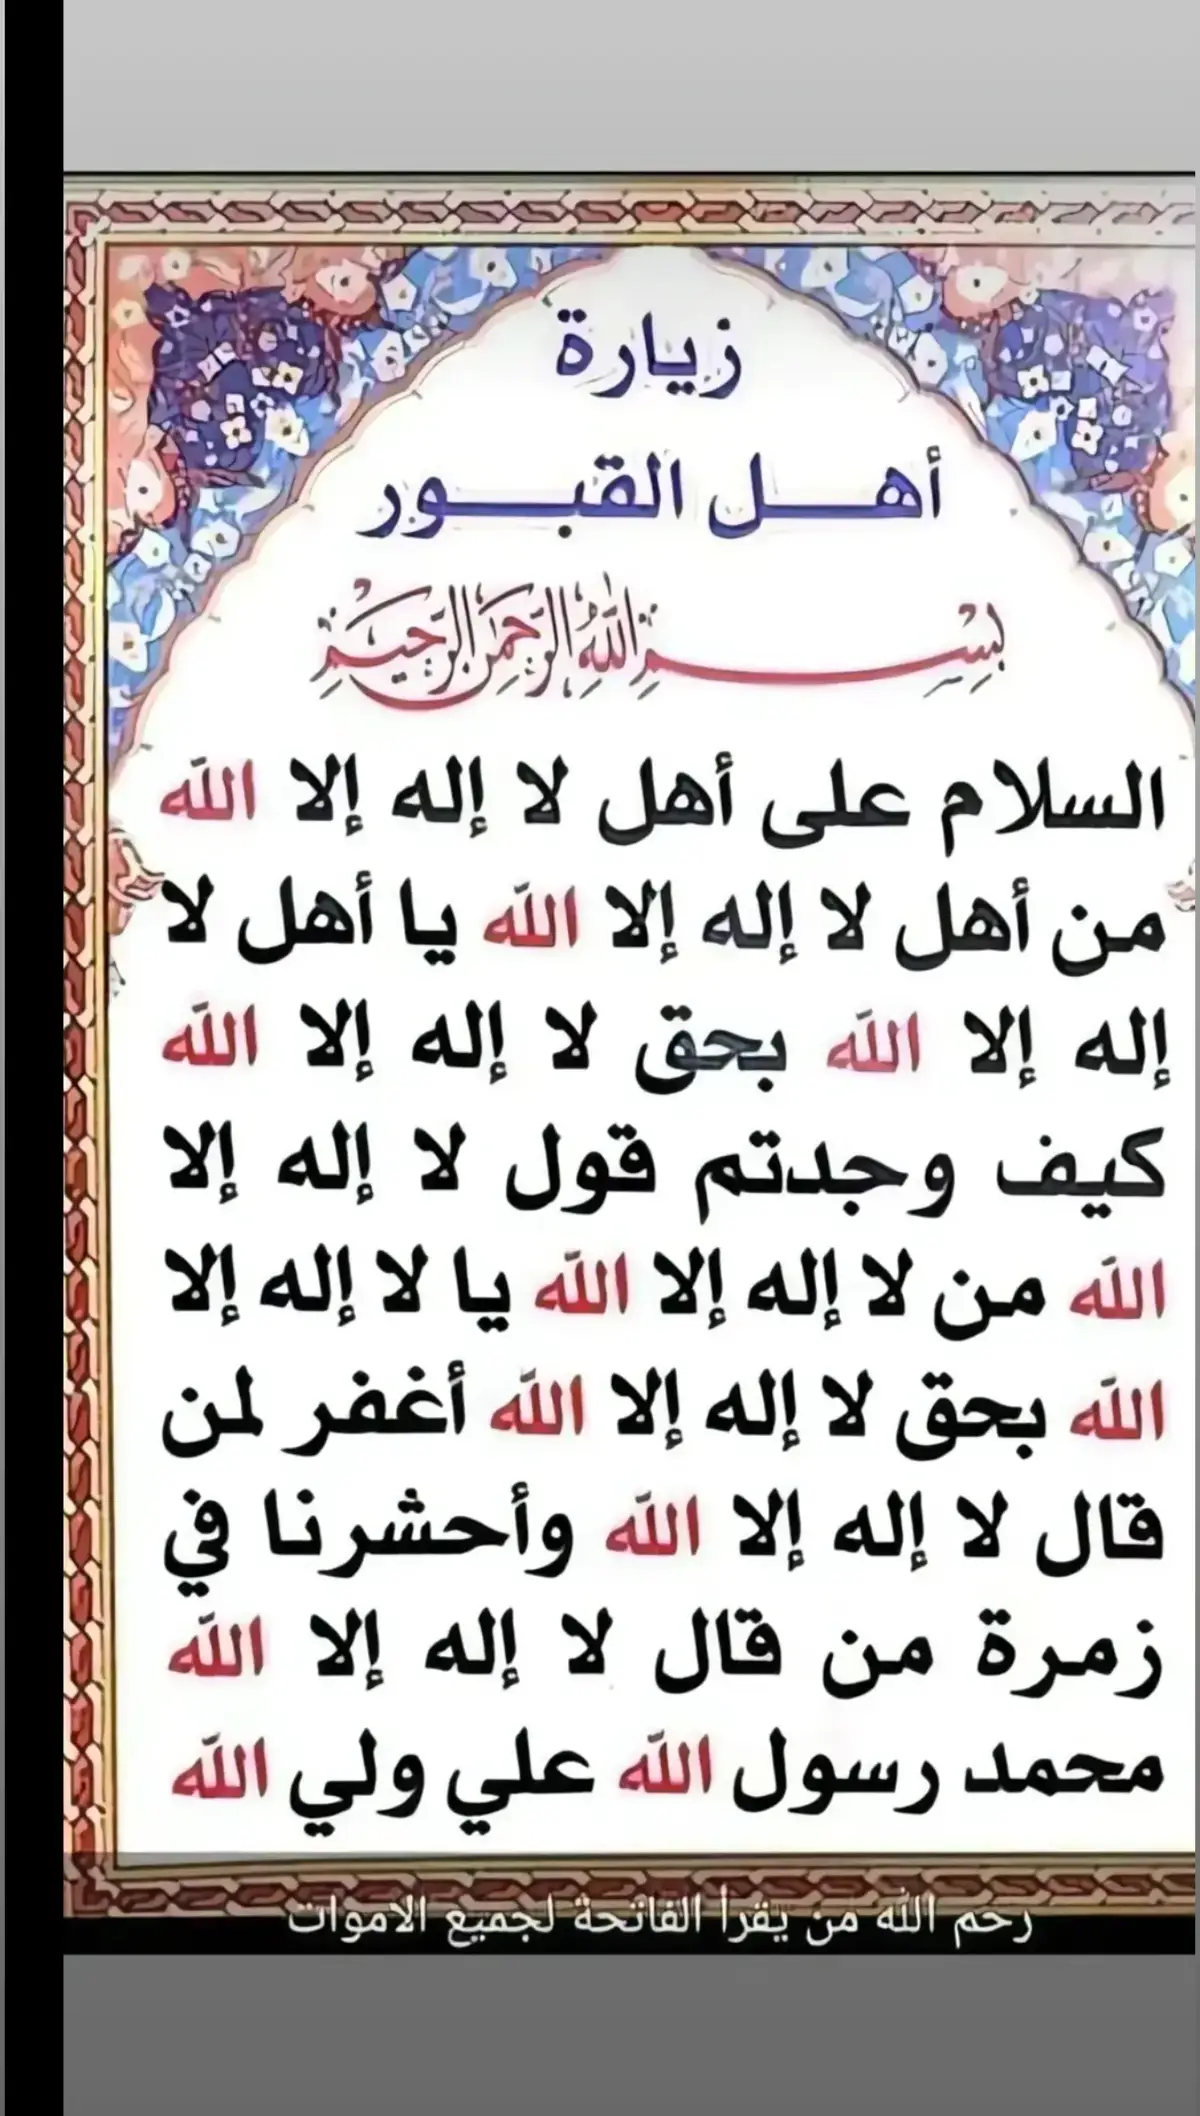 زيارة
أهل القبور
بسم الله الرحمن الرحيم
السلام على أهل لا إله إلا الله
من أهل لا إله إلا الله يا أهل لا
إله إلا الله بحق لا إله إلا الله
كيف وجدتم قول لا إله إلا
الله من لا إله إلا الله يا لا إله إلا
الله بحق لا إله إلا الله أغفر لمن
قال لا إله إلا الله وأحشرنا في
زمرة من قال لا إله إلا الله
محمد رسول الله علي ولي الله
رحم الله من يقرأ الفاتحة لجميع الاموات